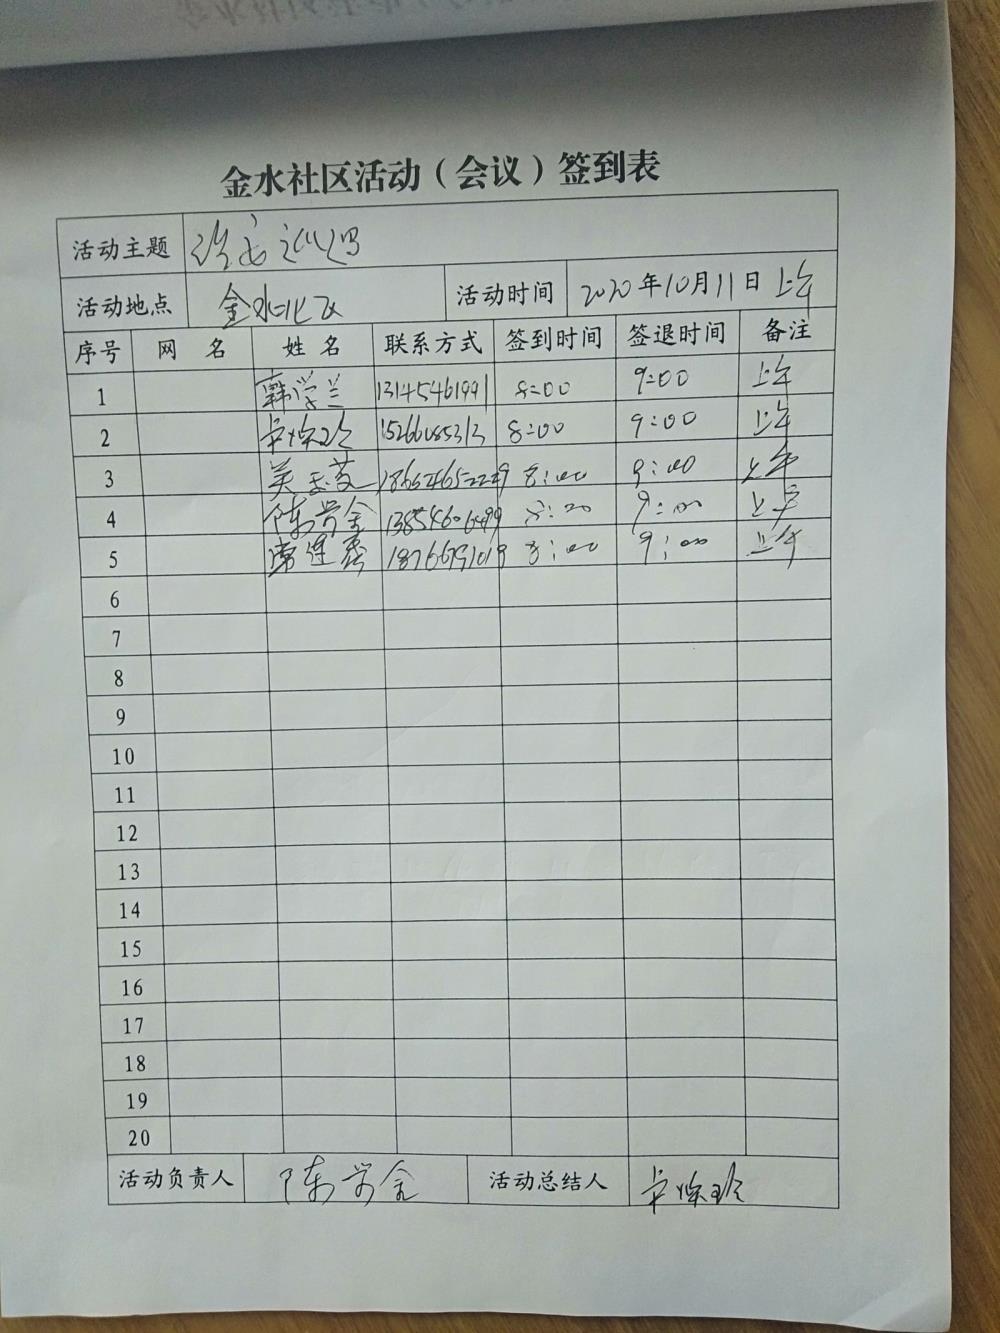 金水社区活动（会议）签到表
活动主题 治安巡逻
活动地点 金水小区 活动时间 2020年10月11日 上午
序号 网名 姓名 联系方式 签到时间 签退时间 备注
1 韩学兰 13145461991 8:00 9:00 上午
2 15266085313 8:00 9:00 上午
3 18662465229 8:00 9:00 上午
4 陈学金 13854606499 9:00 上午
5 18766791019 8:00 9:00 上午
6
7
8
9
10
11
12
13
14
15
16
17
18
19
20
活动负责人 陈学金 活动总结人